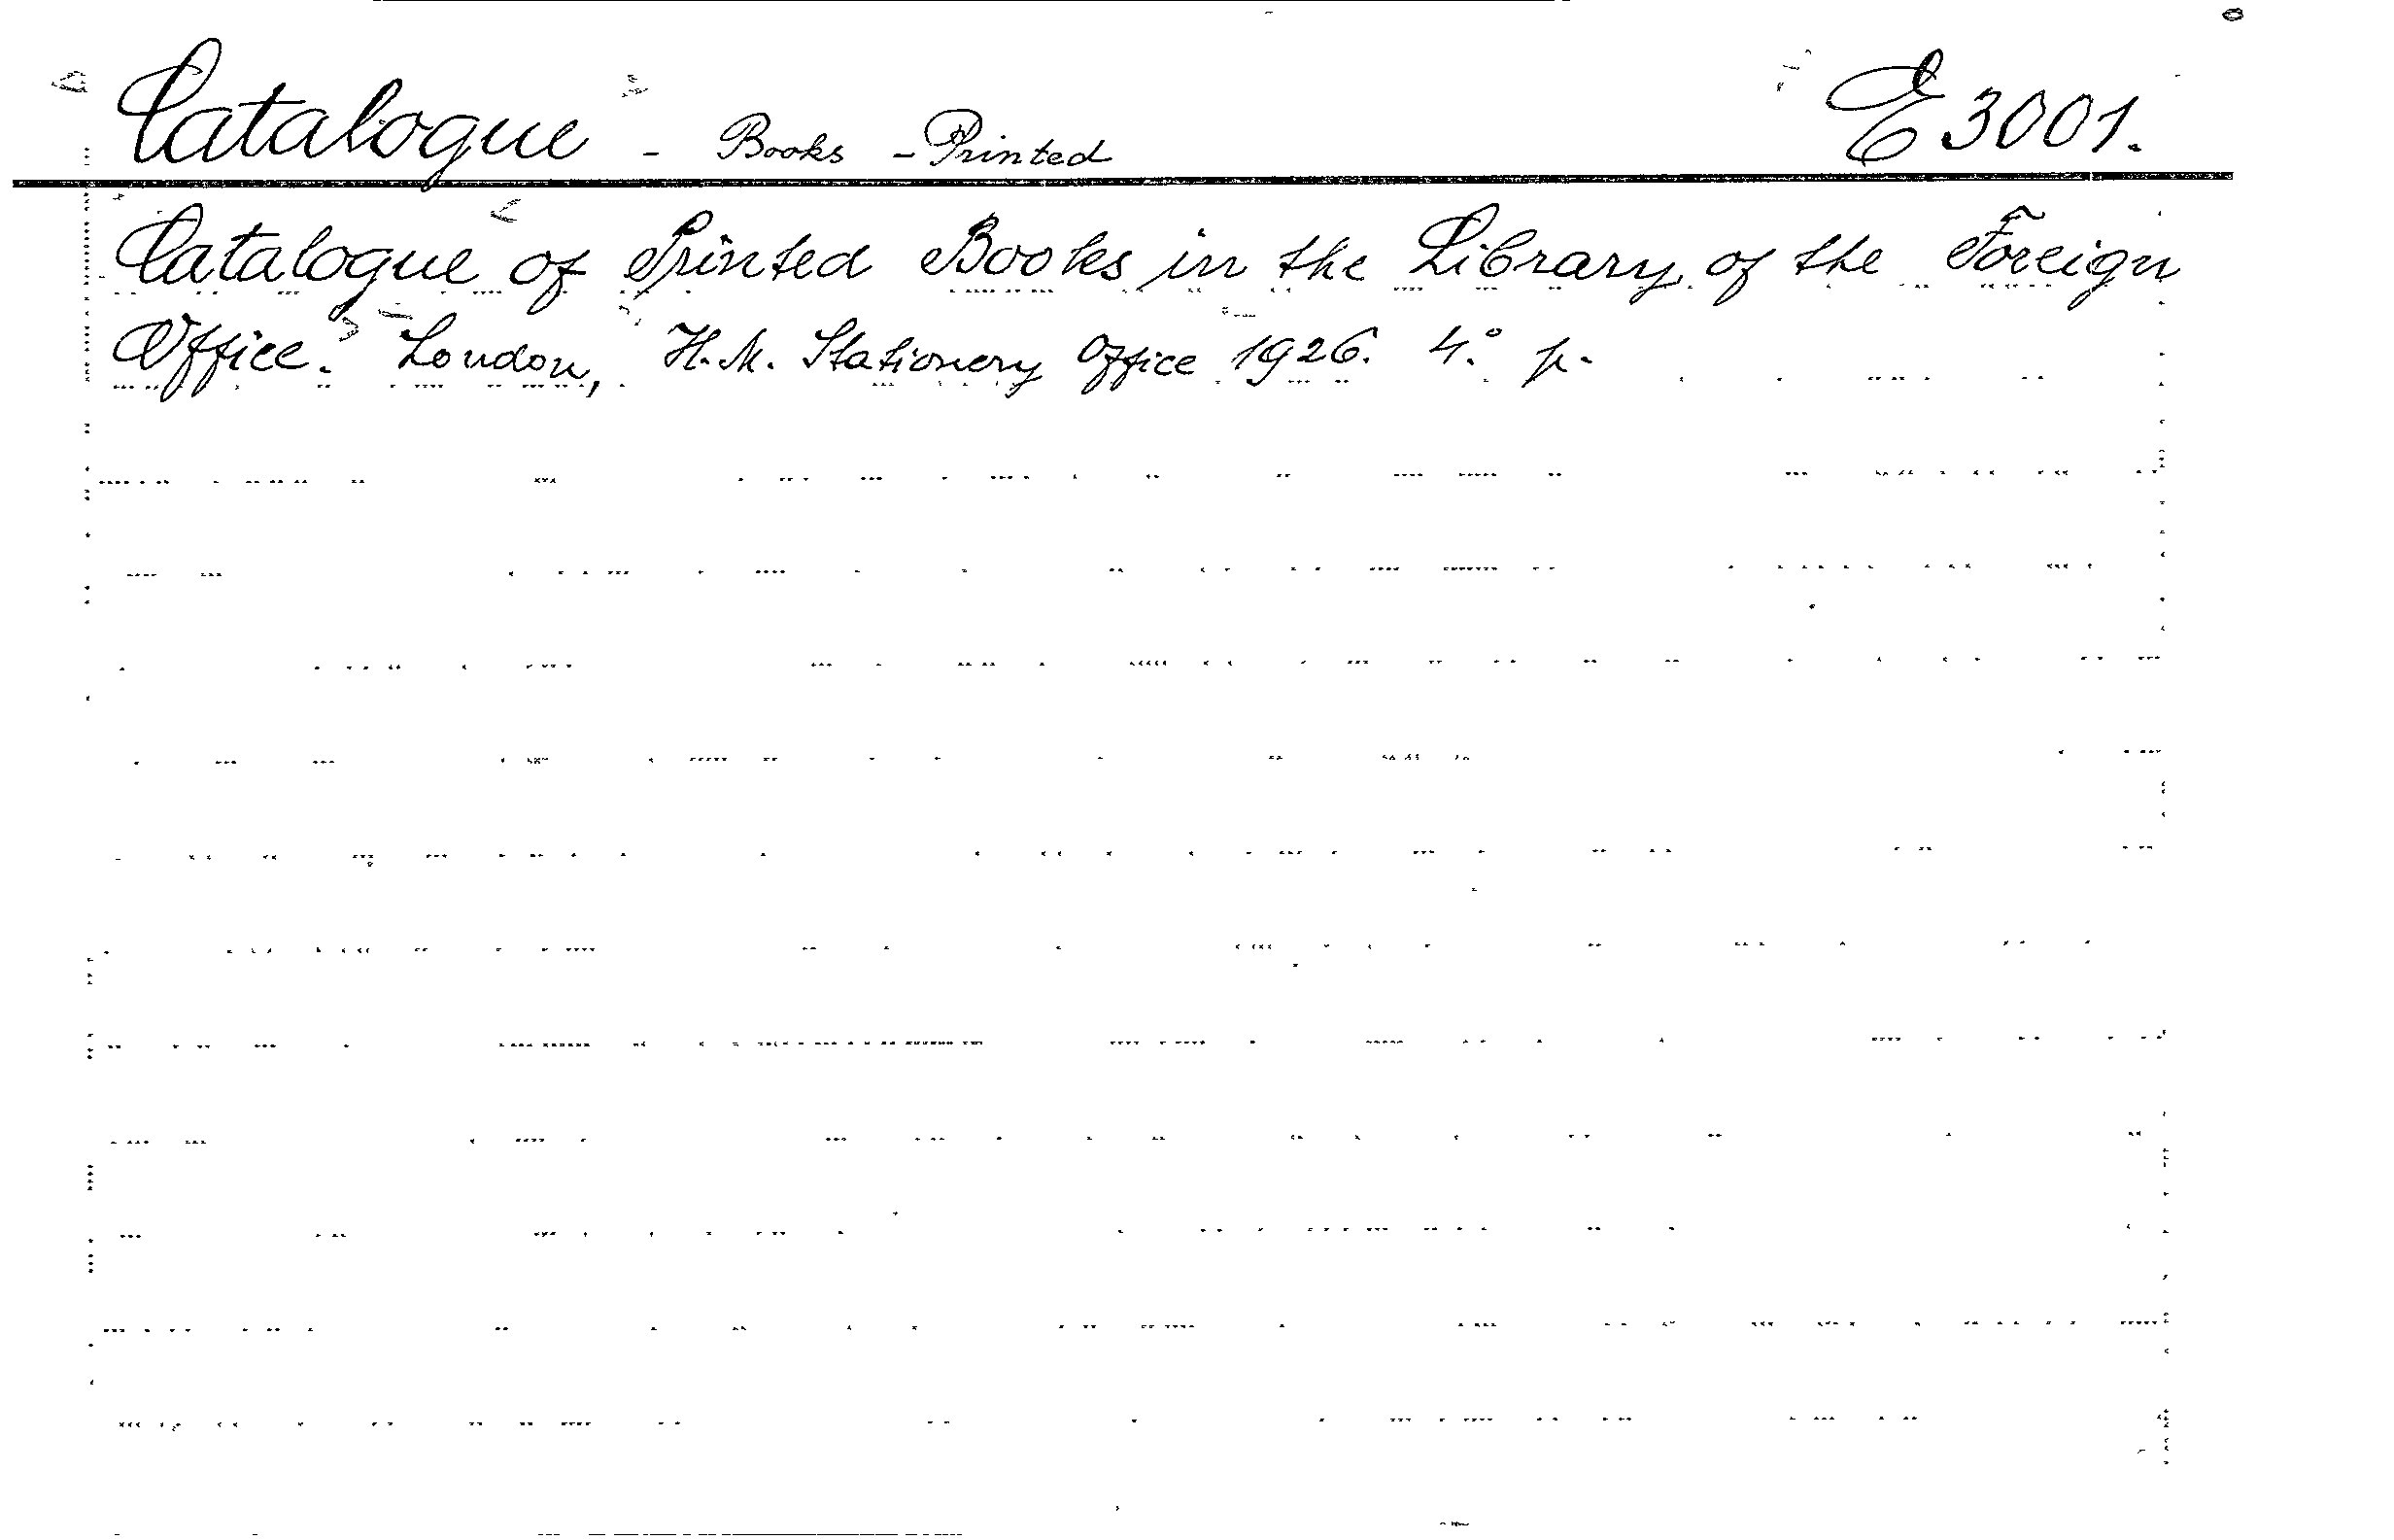 Catalogue - Books - Printed E 3001.
Catalogue of Printed Books in the Library of the Foreign
Office. London, H.M. Stationery Office 1926. 4.° p.